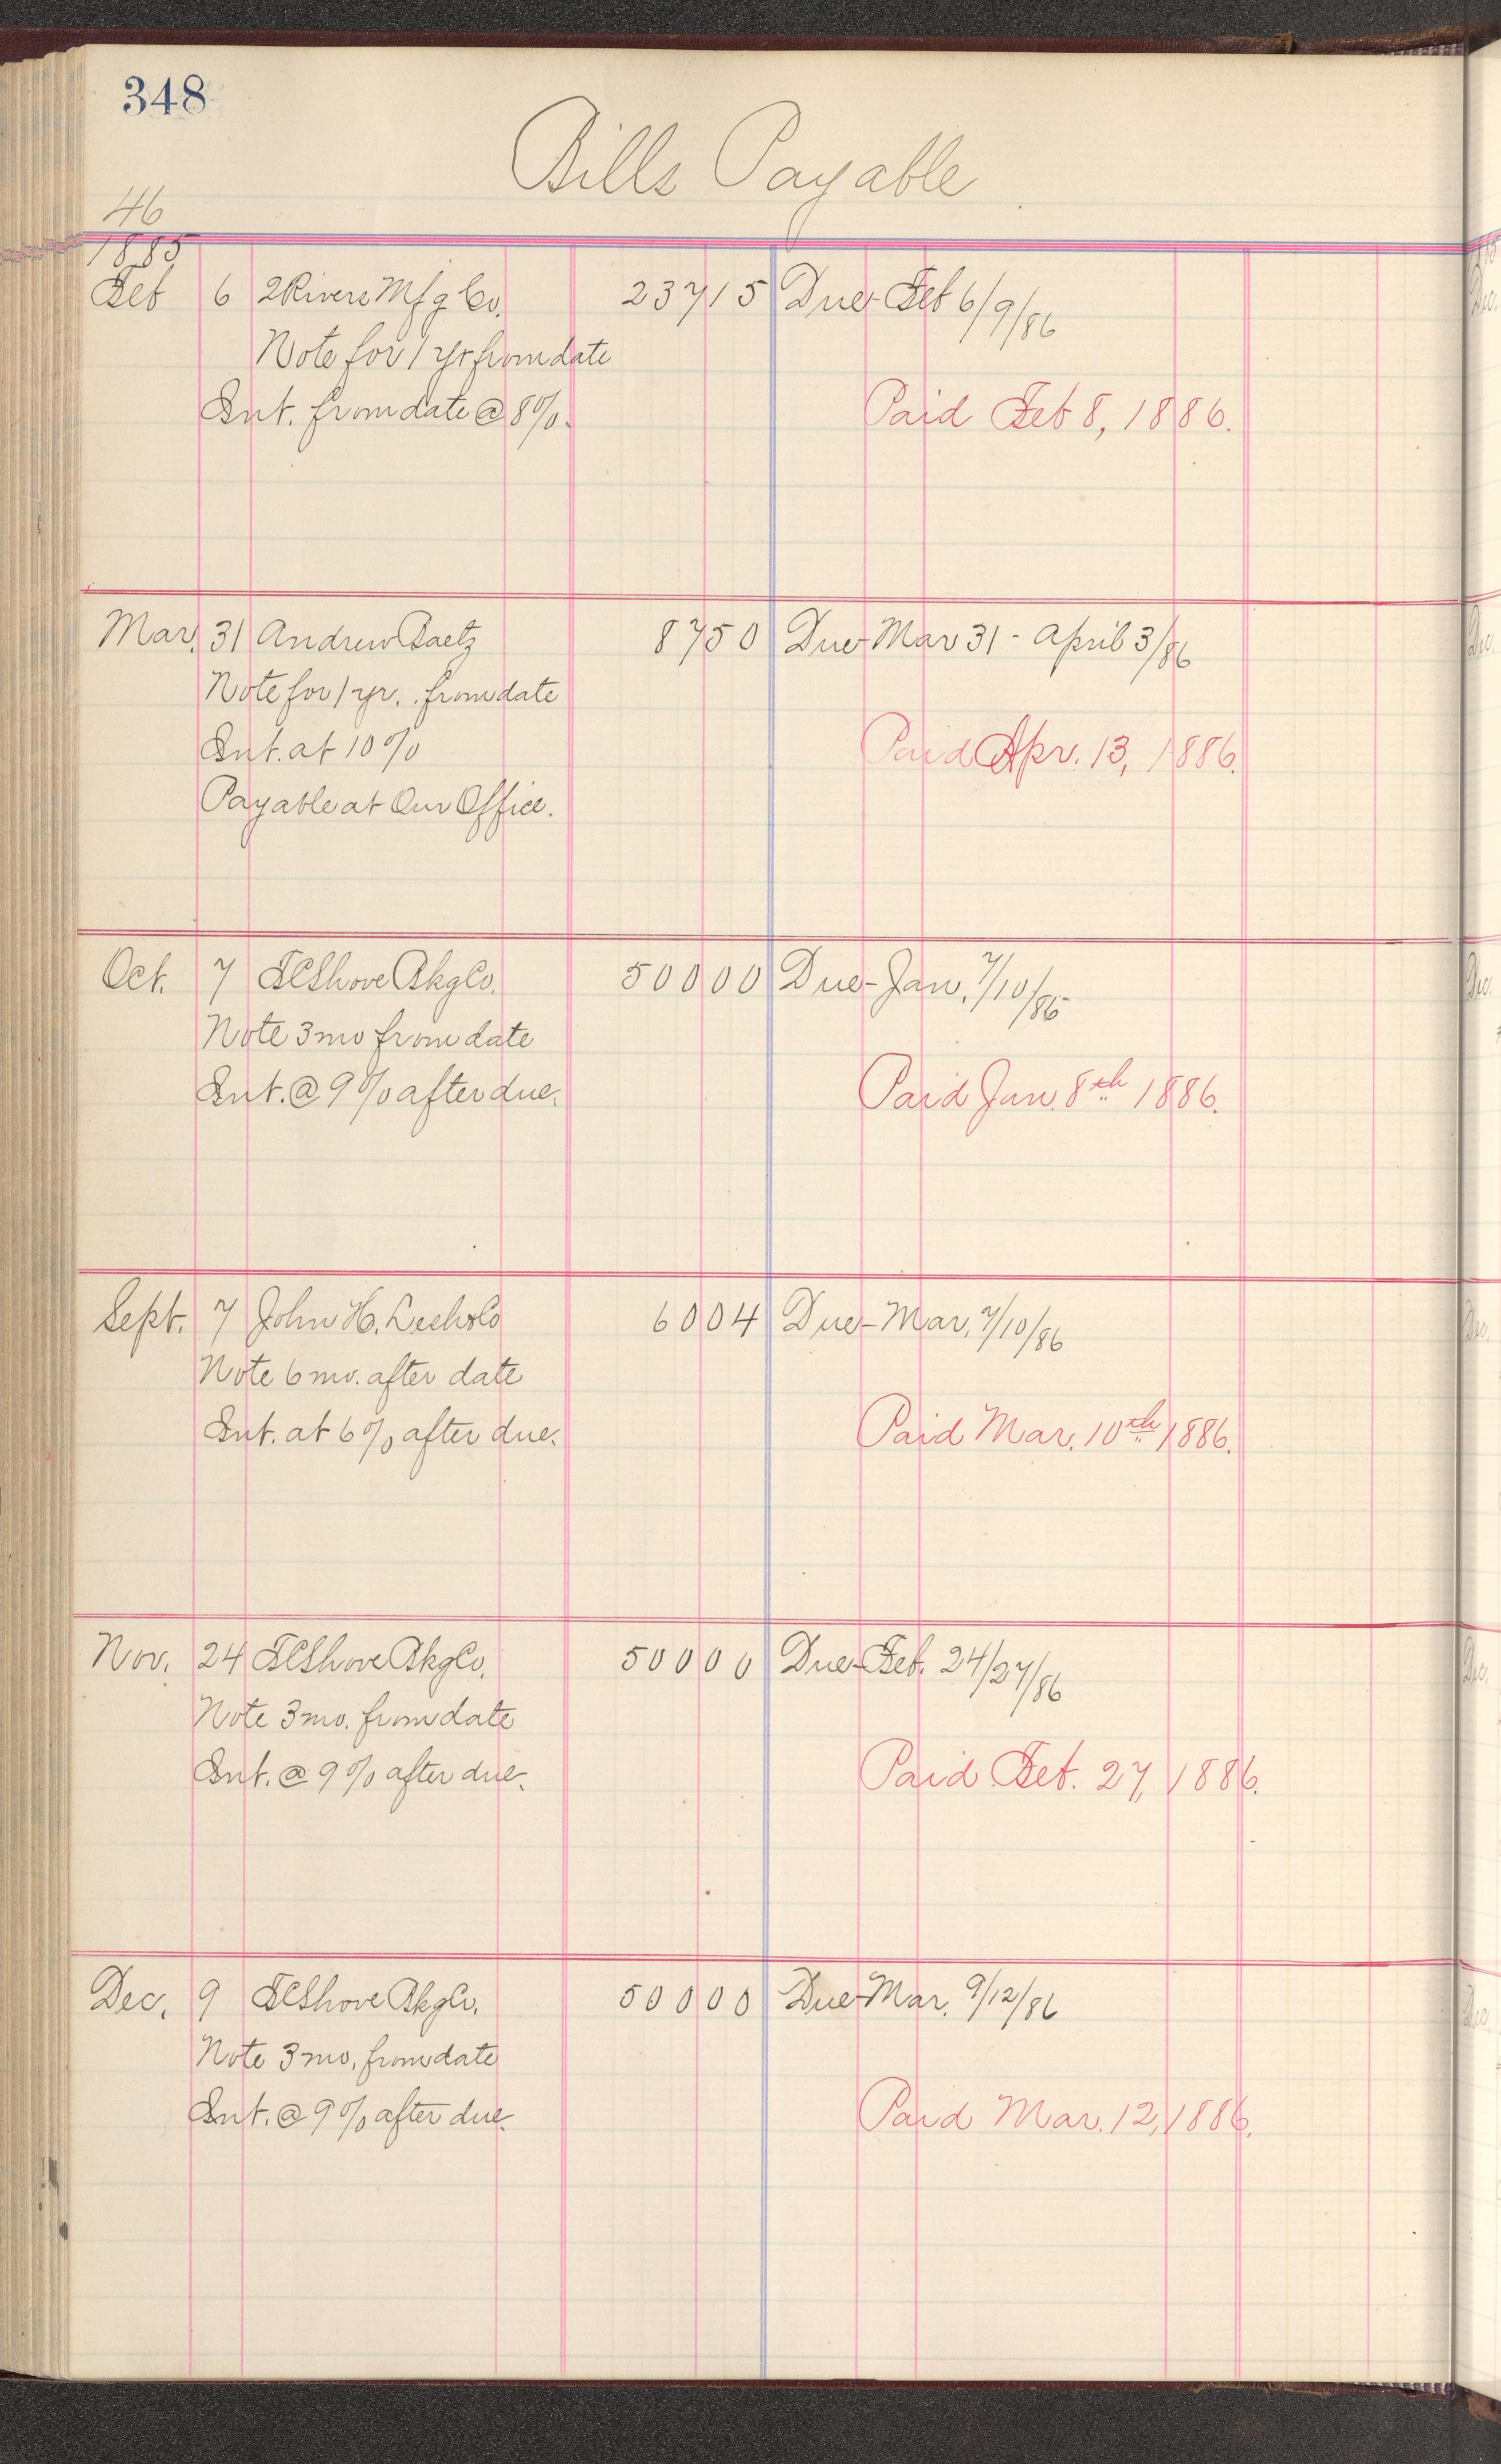 348
Bills Payable
46
1885
Feb 6 2 Rivers Mfg Co. 237 15 Due Feb 6/9/86
Note for 1 yr from date
Int. from date @ 8%. Paid Feb 8, 1886.
Mar. 31 Andrew Baetz 87 50 Due Mar 31 - April 3/86
Note for 1 yr. from date
Int. at 10% Paid Apr. 13, 1886.
Payable at Our Office.
Oct. 7 T C Shove Bkg Co. 500 00 Due - Jan. 7/10/86
Note 3 mo from date
Int. @ 9% after due. Paid Jan. 8th 1886.
Sept. 7 John H. 60 04 Due - Mar. 7/10/86
Note 6 mo. after date
Int. at 6% after due. Paid Mar. 10th 1886.
Nov. 24 T C Shove Bkg Co. 500 00 Due - Feb. 24/27/86
Note 3 mo. from date
Int. @ 9% after due. Paid Feb. 27, 1886.
Dec. 9 T C Shove Bkg Co. 500 00 Due Mar. 9/12/86
Note 3 mo. from date
Int. @ 9% after due. Paid Mar. 12, 1886.